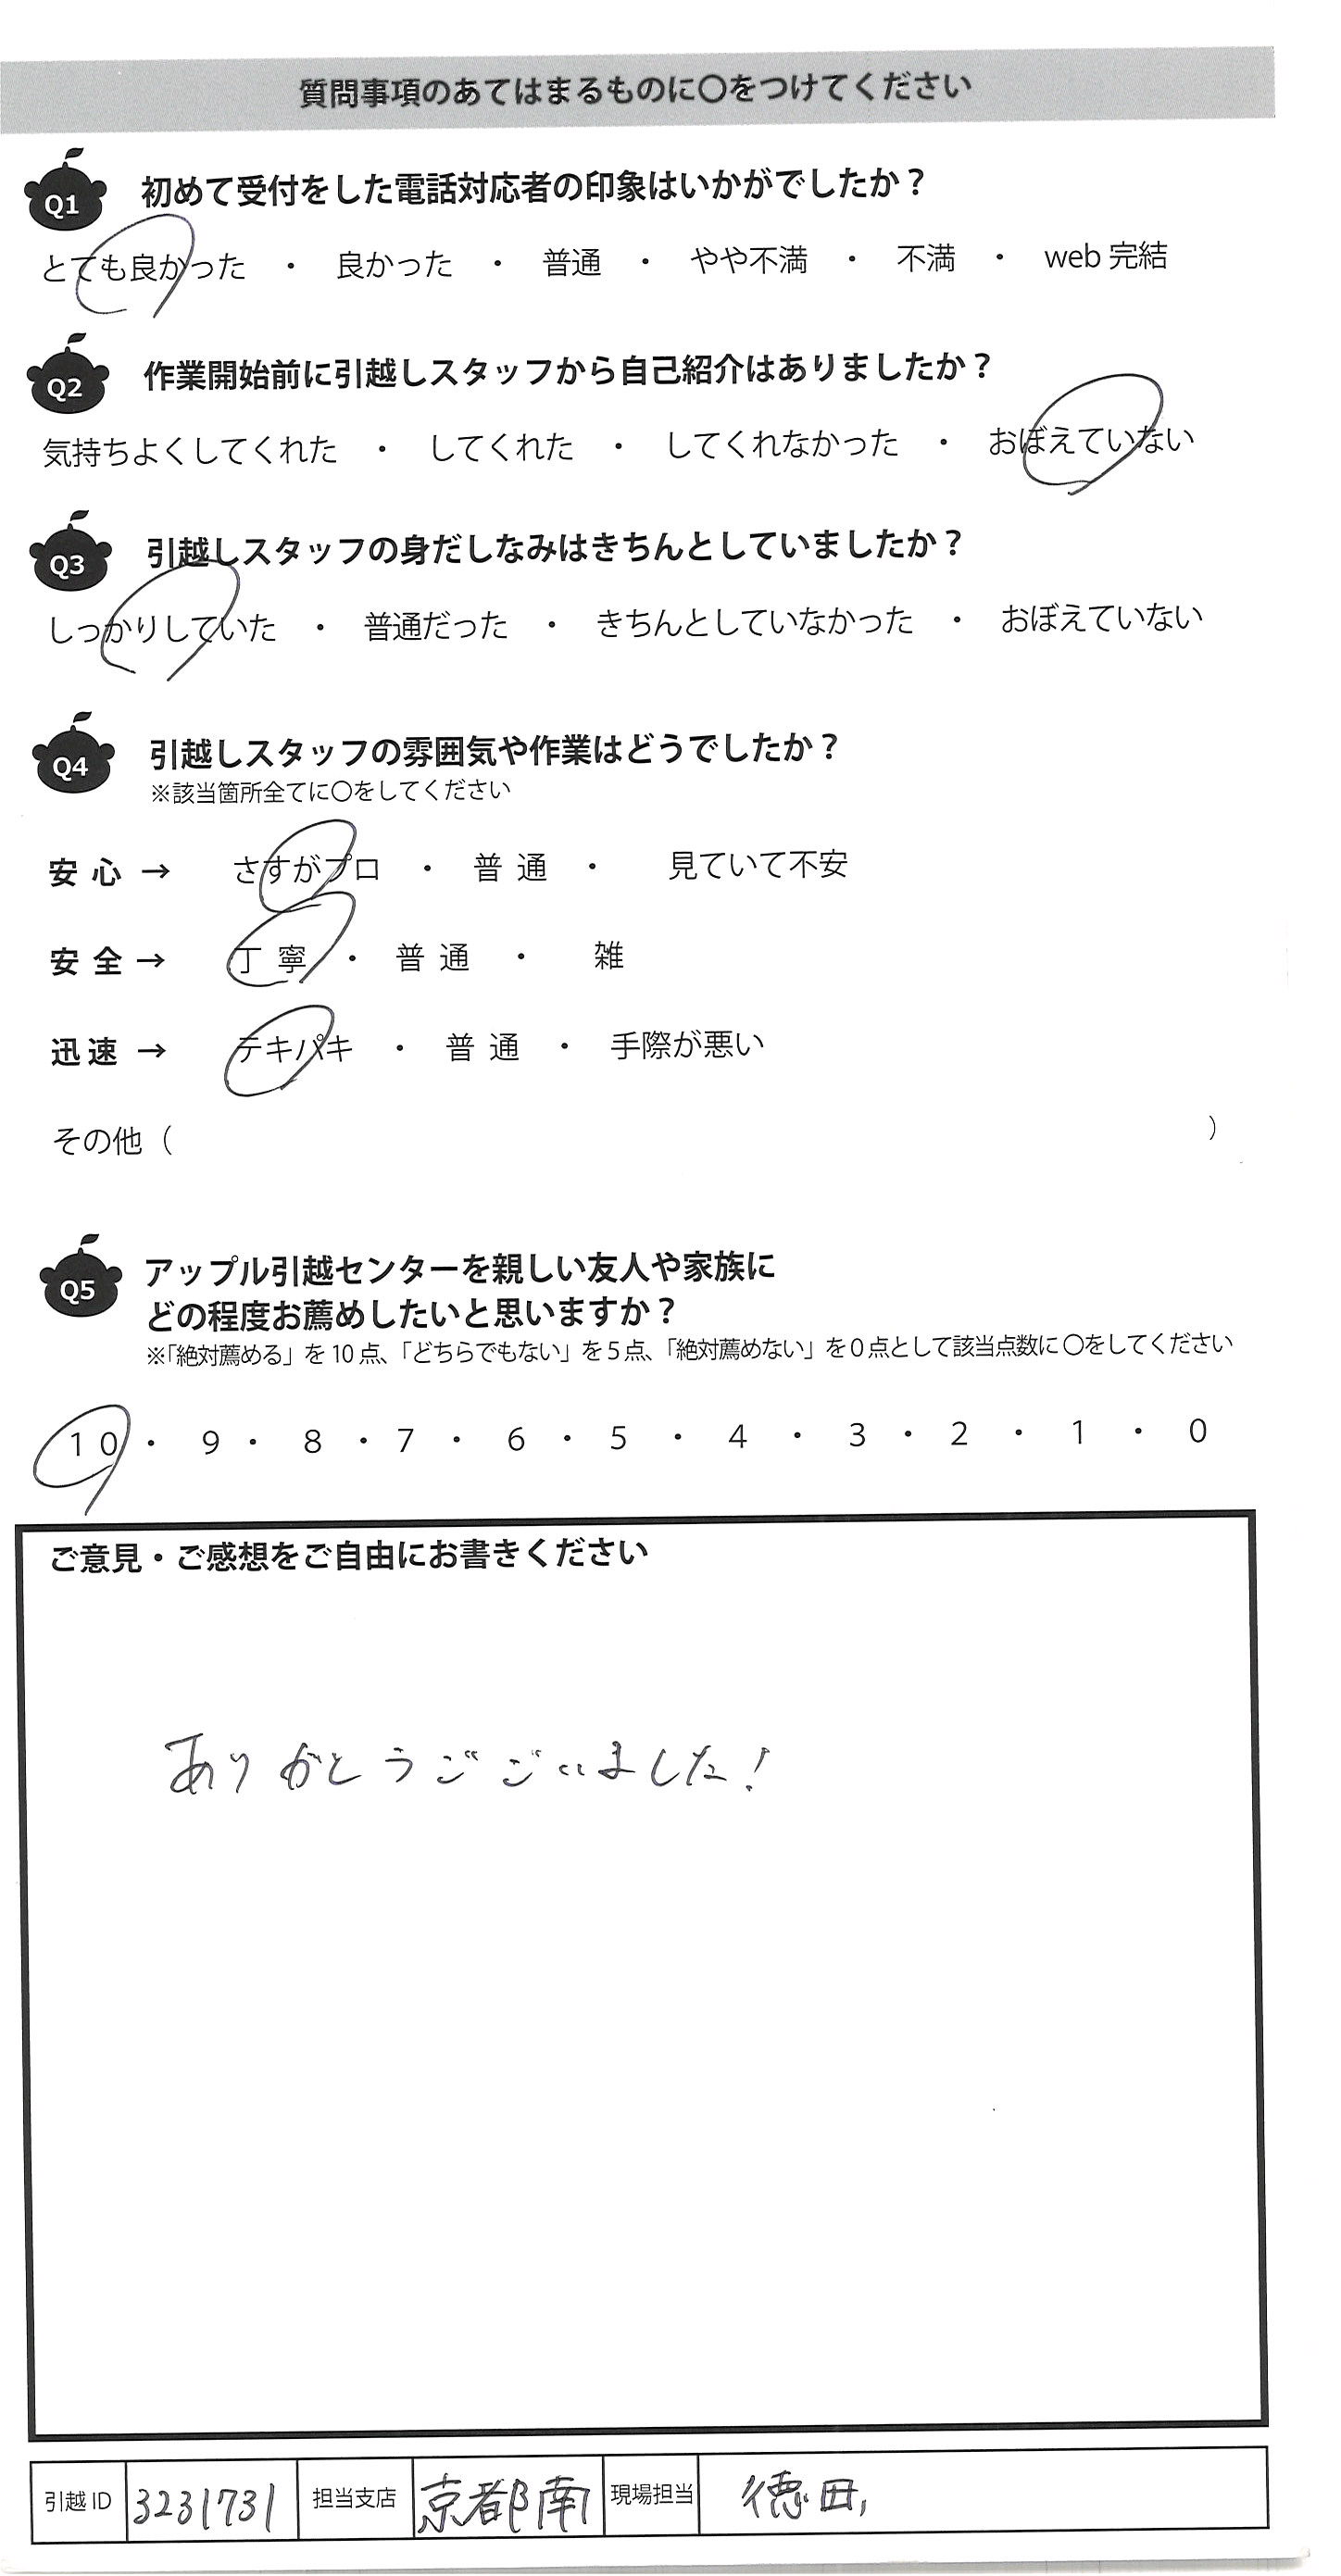 質問事項のあてはまるものに〇をつけてください
Q1 初めて受付をした電話対応者の印象はいかがでしたか？
とても良かった ・ 良かった ・ 普通 ・ やや不満 ・ 不満 ・ web 完結
Q2 作業開始前に引越しスタッフから自己紹介はありましたか？
気持ちよくしてくれた ・ してくれた ・ してくれなかった ・ おぼえていない
Q3 引越しスタッフの身だしなみはきちんとしていましたか？
しっかりしていた ・ 普通だった ・ きちんとしていなかった ・ おぼえていない
Q4 引越しスタッフの雰囲気や作業はどうでしたか？
※該当箇所全てに〇をしてください
安心 → さすがプロ ・ 普通 ・ 見ていて不安
安全 → 丁寧 ・ 普通 ・ 雑
迅速 → テキパキ ・ 普通 ・ 手際が悪い
その他（ ）
Q5 アップル引越センターを親しい友人や家族に
どの程度お薦めしたいと思いますか？
※「絶対薦める」を10点、「どちらでもない」を5点、「絶対薦めない」を0点として該当点数に〇をしてください
10 ・ 9 ・ 8 ・ 7 ・ 6 ・ 5 ・ 4 ・ 3 ・ 2 ・ 1 ・ 0
ご意見・ご感想をご自由にお書きください
ありがとうございました！
引越ID 3231731 担当支店 京都南 現場担当 徳田